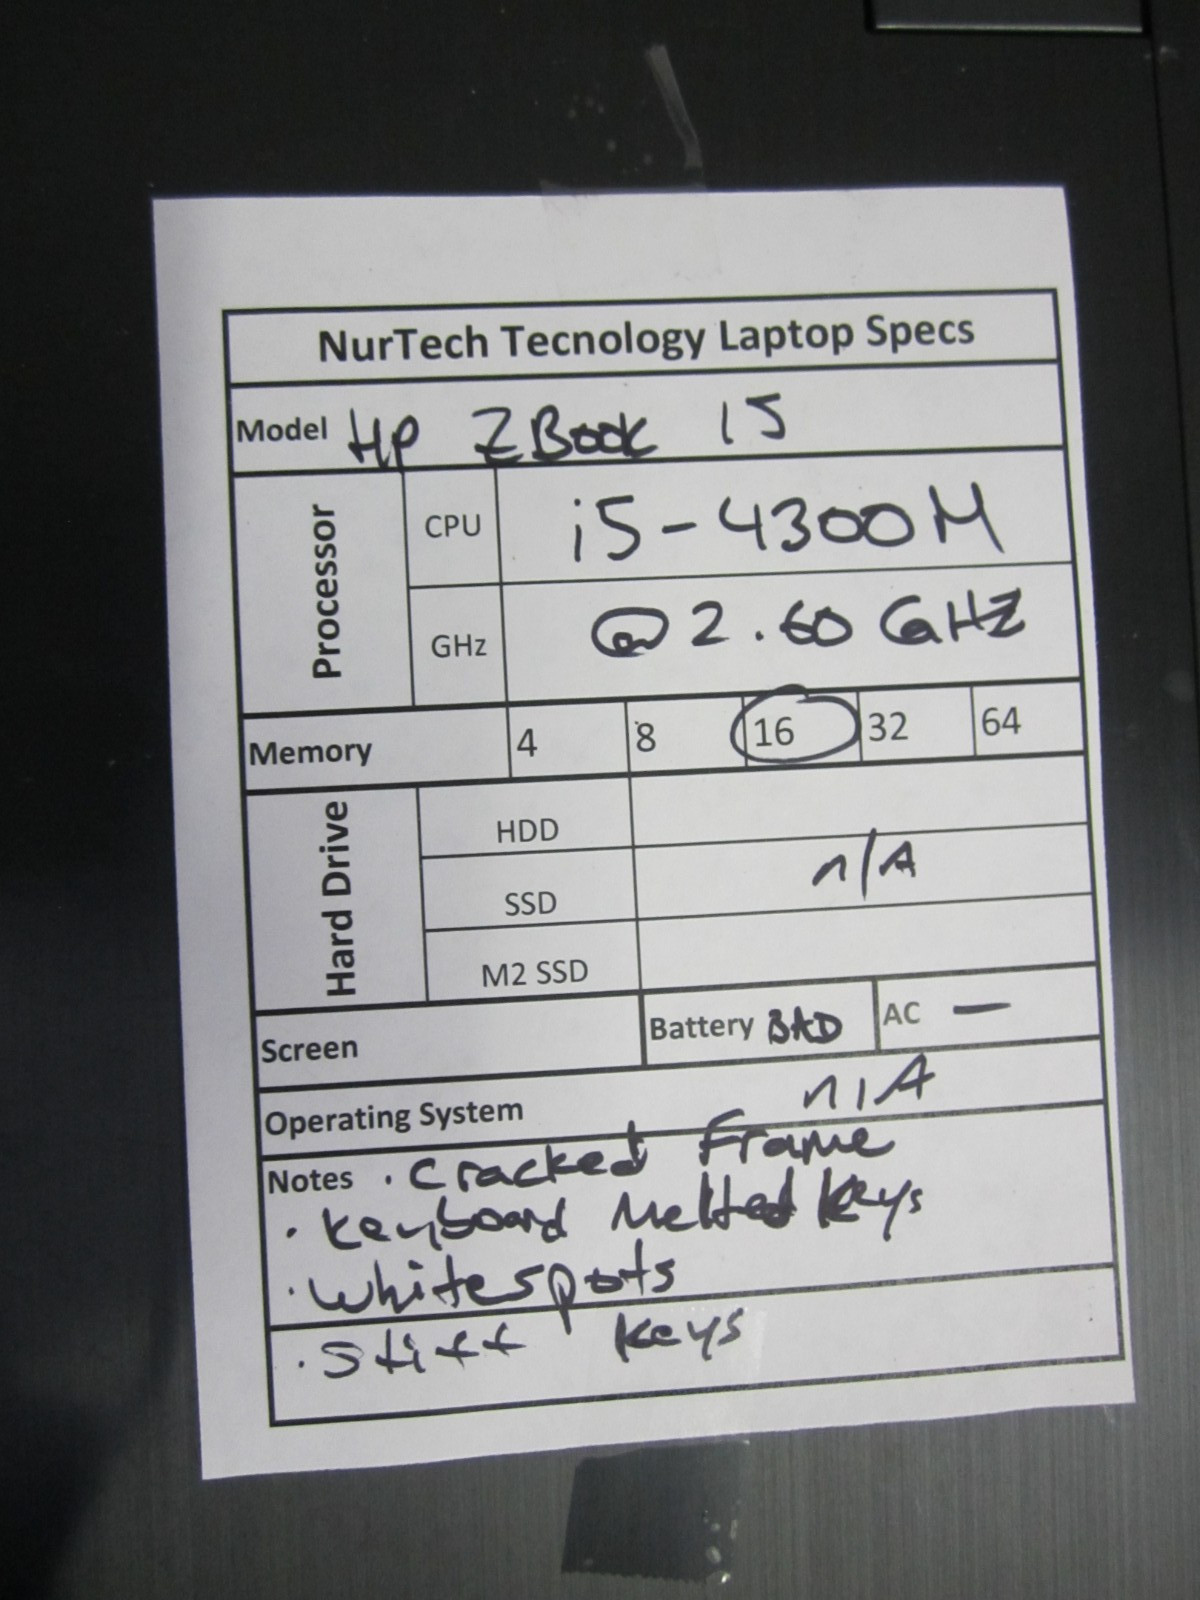 NurTech Tecnology Laptop Specs
Model HP ZBook 15
Processor
CPU i5-4300M
GHz @ 2.60 GHZ
Memory 4 8 16 32 64
Hard Drive
HDD
SSD n/A
M2 SSD
Screen Battery BAD AC —
Operating System n/A
Notes · Cracked Frame
· Keyboard Melted Keys
· White spots
· Stiff Keys